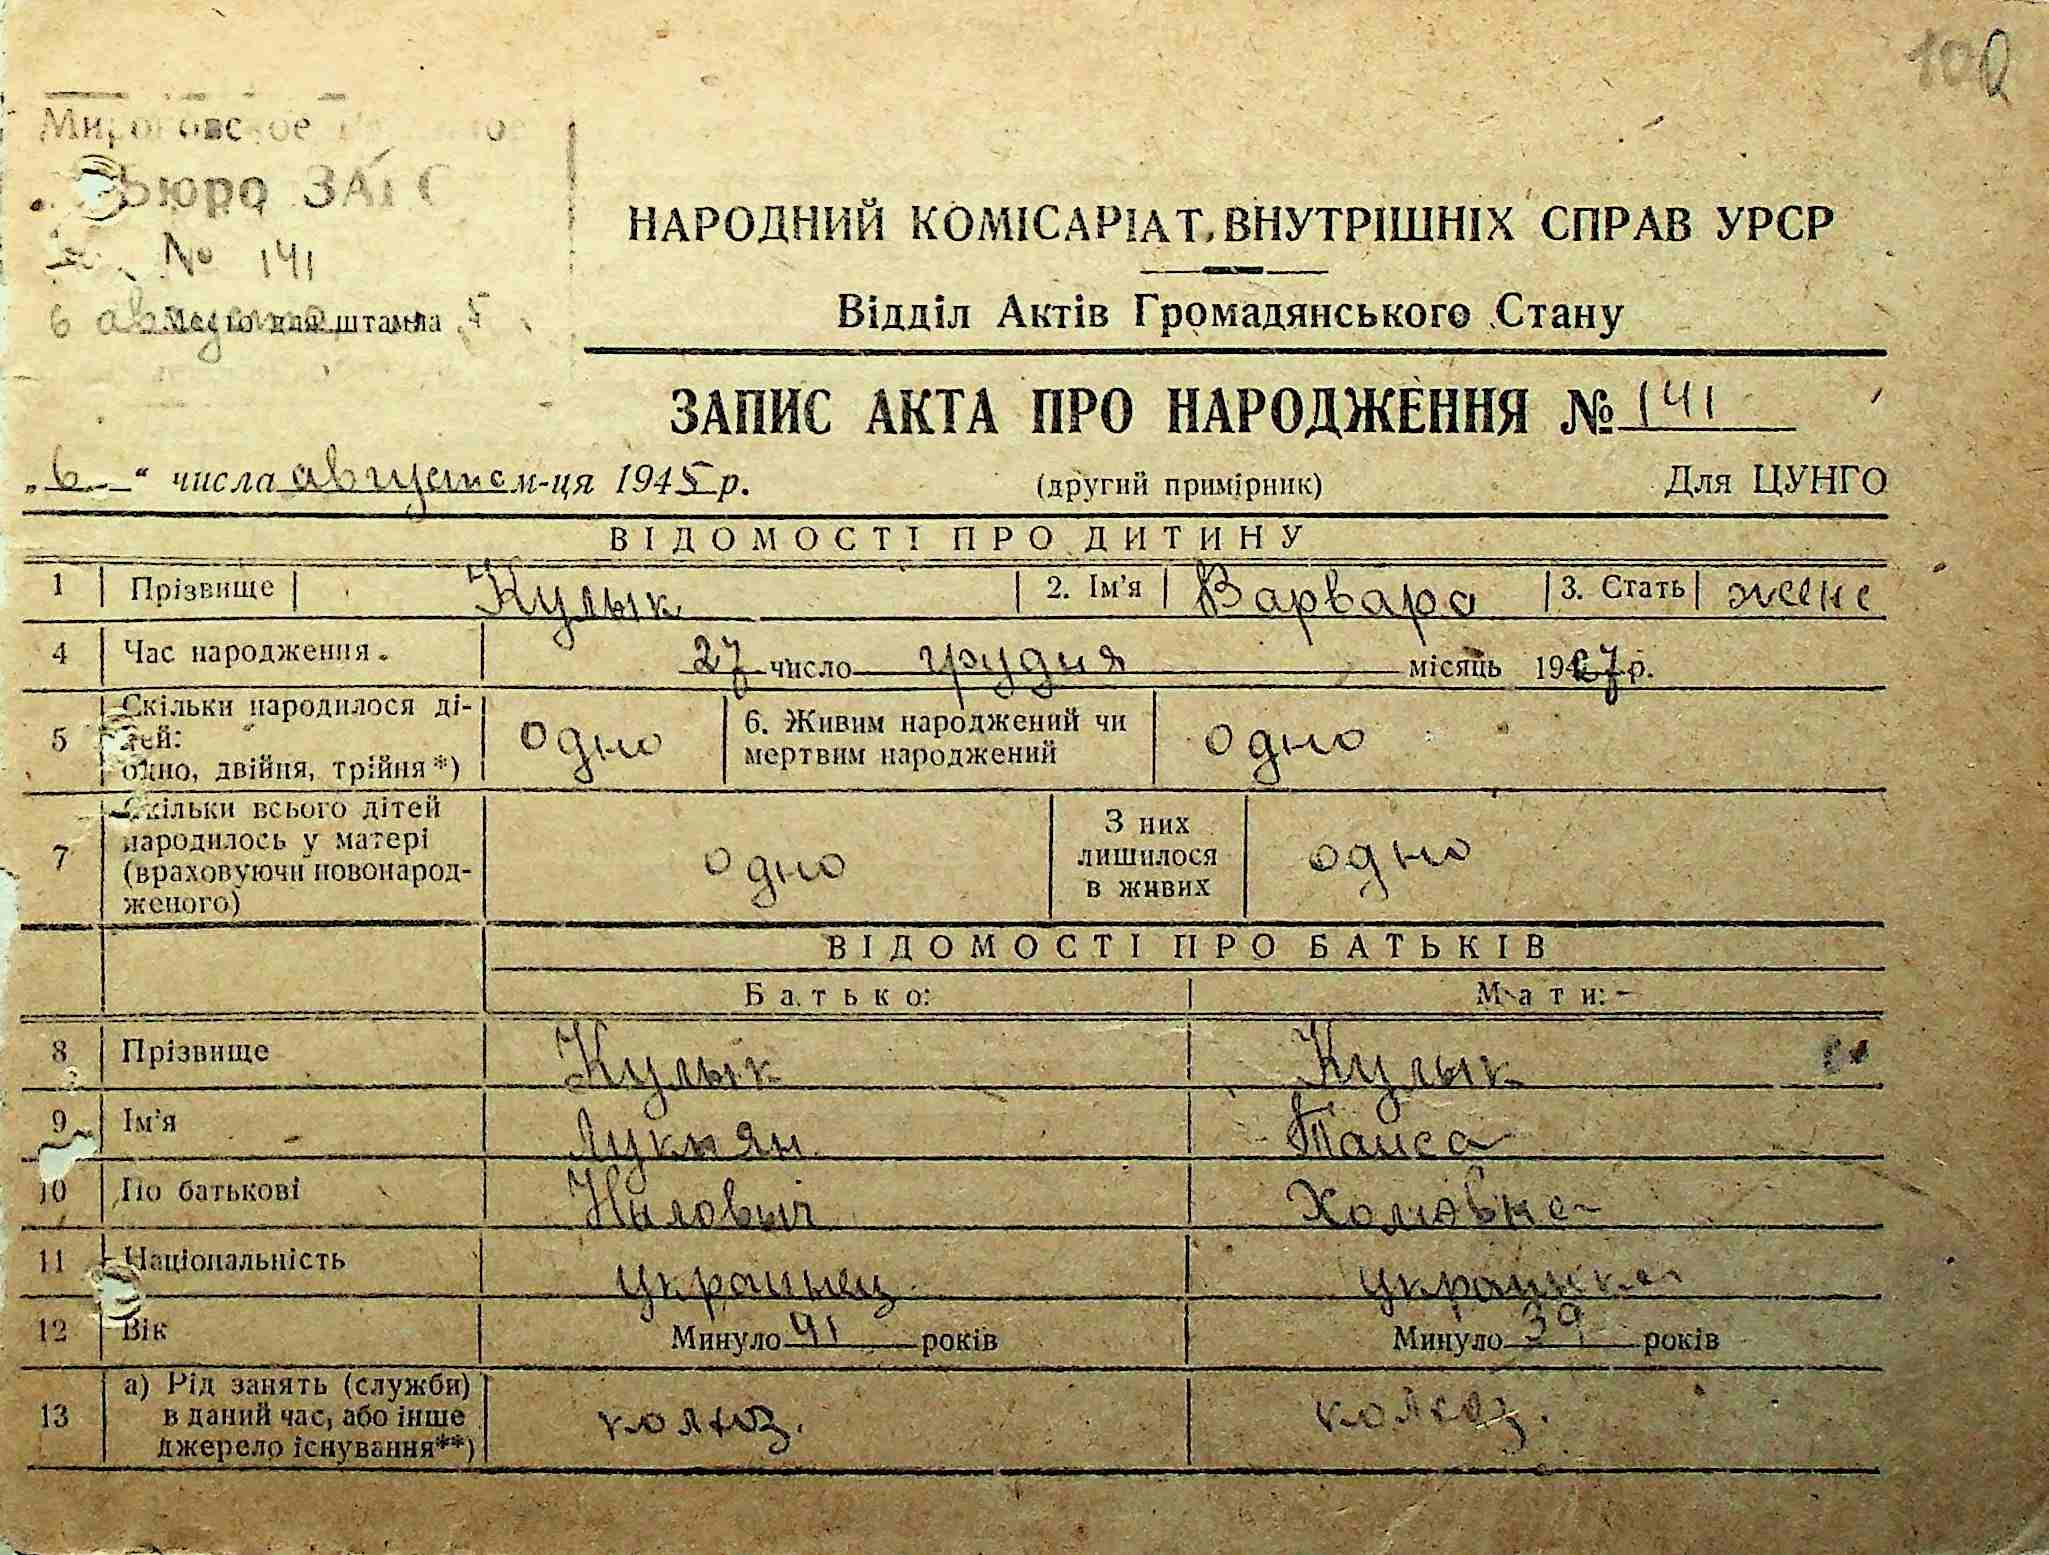 100
Бюро ЗАГС
№ 141
6 августа 5
Место для штампа
НАРОДНИЙ КОМІСАРІАТ ВНУТРІШНІХ СПРАВ УРСР
Відділ Актів Громадянського Стану
ЗАПИС АКТА ПРО НАРОДЖЕННЯ № 141
„6“ числа августа м-ця 1945 р. (другий примірник) Для ЦУНГО
ВІДОМОСТІ ПРО ДИТИНУ
1 Прізвище Кулык 2. Ім'я Варвара 3. Стать жене
4 Час народження. 27 число грудня місяць 1927 р.
5 Скільки народилося ді-
тей:
одно, двійня, трійня*) одно 6. Живим народжений чи
мертвим народжений одно
7 Скільки всього дітей
народилось у матері
(враховуючи новонарод-
женого) одно З них
лишилося
в живих одно
ВІДОМОСТІ ПРО БАТЬКІВ
Батько: Мати:
8 Прізвище Кулык Кулык
9 Ім'я Лукян Таиса
10 По батькові Ныловыч
11 Національність украинец украинка
12 Вік Минуло 41 років Минуло 39 років
13 а) Рід занять (служби)
в даний час, або інше
джерело існування**) колхоз. колхоз.